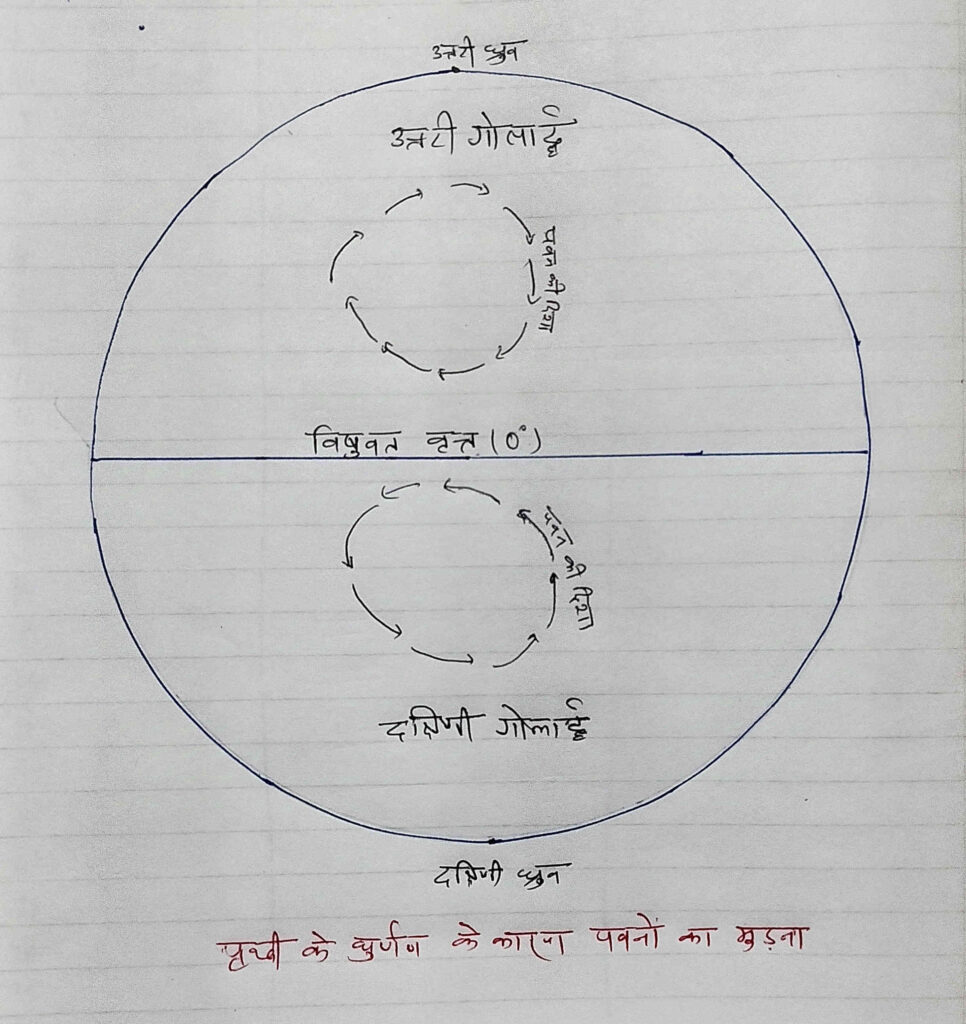 उत्तरी ध्रुव
उत्तरी गोलार्द्ध
पवन की दिशा
विषुवत वृत्त (0°)
पवन की दिशा
दक्षिणी गोलार्द्ध
दक्षिणी ध्रुव
पृथ्वी के घुर्णण के कारण पवनों का मुड़ना